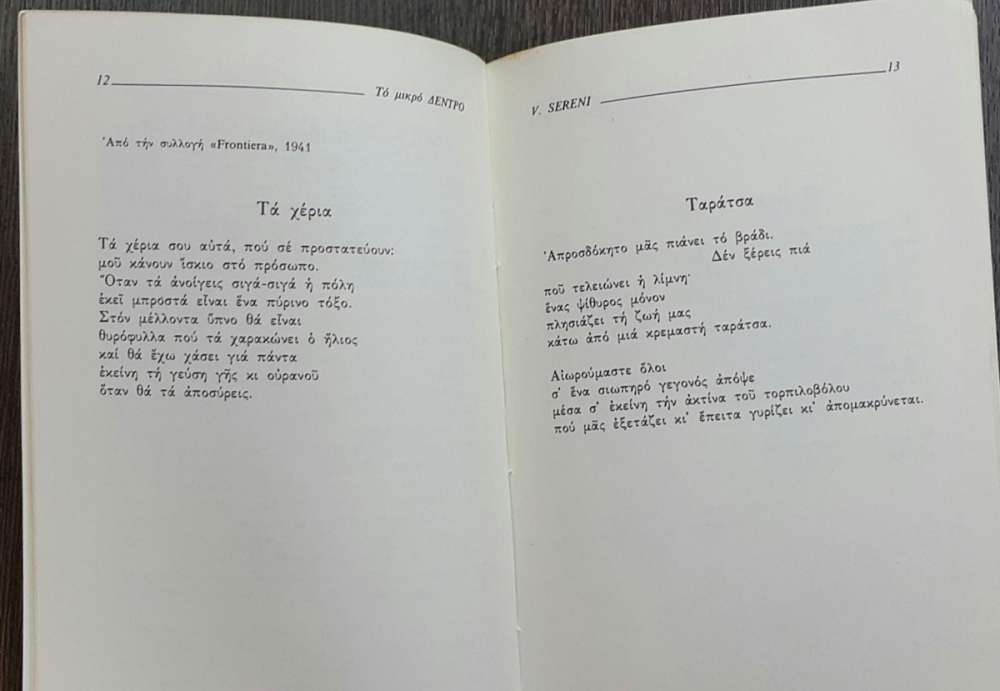 12 Τό μικρό ΔΕΝΤΡΟ
Ἀπό τήν συλλογή «Frontiera», 1941
Τά χέρια
Τά χέρια σου αὐτά, πού σέ προστατεύουν:
μοῦ κάνουν ἴσκιο στό πρόσωπο.
Ὅταν τά ἀνοίγεις σιγά-σιγά ἡ πόλη
ἐκεῖ μπροστά εἶναι ἕνα πύρινο τόξο.
Στόν μέλλοντα ὕπνο θά εἶναι
θυρόφυλλα πού τά χαρακώνει ὁ ἥλιος
καί θά ἔχω χάσει γιά πάντα
ἐκείνη τή γεύση γῆς κι οὐρανοῦ
ὅταν θά τά ἀποσύρεις.
V. SERENI 13
Ταράτσα
Ἀπροσδόκητο μᾶς πιάνει τό βράδι.
Δέν ξέρεις πιά
ποῦ τελειώνει ἡ λίμνη·
ἕνας ψίθυρος μόνον
πλησιάζει τή ζωή μας
κάτω ἀπό μιά κρεμαστή ταράτσα.
Αἰωρούμαστε ὅλοι
σ' ἕνα σιωπηρό γεγονός ἀπόψε
μέσα σ' ἐκείνη τήν ἀκτίνα τοῦ τορπιλοβόλου
πού μᾶς ἐξετάζει κι' ἔπειτα γυρίζει κι' ἀπομακρύνεται.